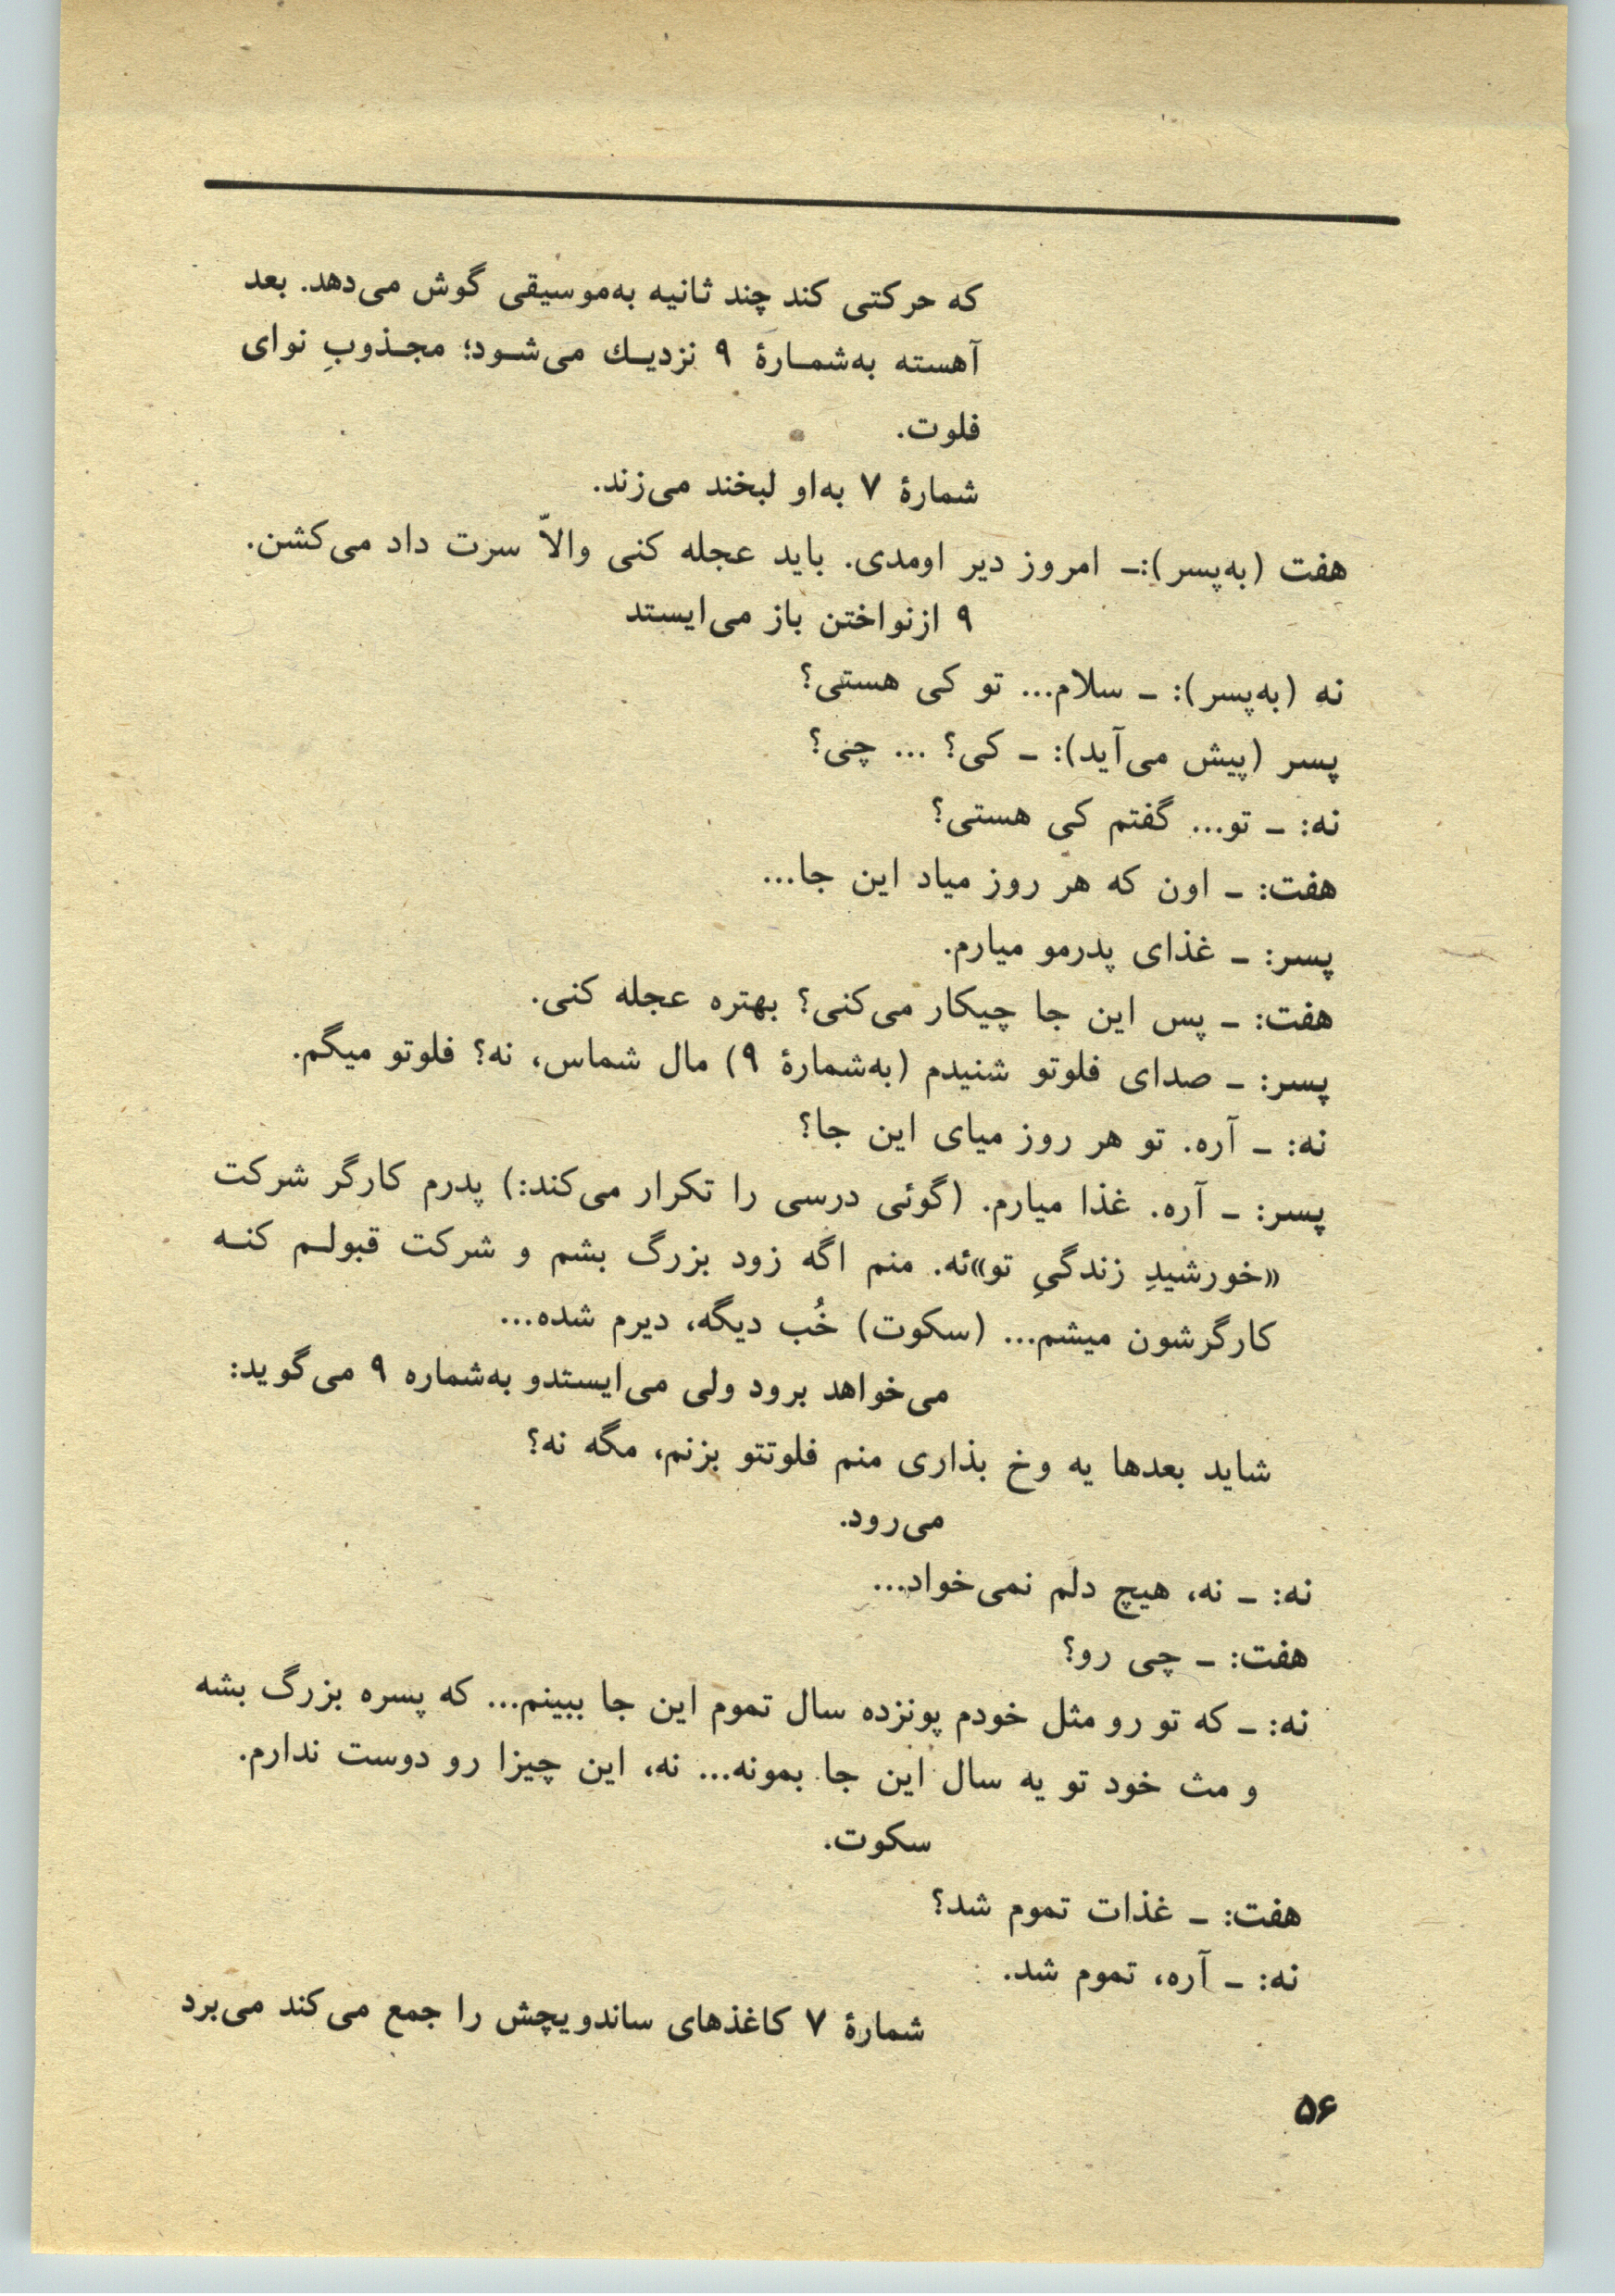 که حرکتی کند چند ثانیه به‌موسیقی گوش می‌دهد. بعد
آهسته به‌شمـارهٔ ۹ نزدیـك می‌شـود؛ مجـذوبِ نوای
فلوت.
شمارهٔ ۷ به‌او لبخند می‌زند.
هفت (به‌پسر):ـ امروز دیر اومدی. باید عجله کنی والاّ سرت داد می‌کشن.
۹ ازنواختن باز می‌ایستد
نه (به‌پسر): ـ سلام... تو کی هستی؟
پسر (پیش می‌آید): ـ کی؟ ... چی؟
نه: ـ تو... گفتم کی هستی؟
هفت: ـ اون که هر روز میاد این جا...
پسر: ـ غذای پدرمو میارم.
هفت: ـ پس این جا چیکار می‌کنی؟ بهتره عجله کنی.
پسر: ـ صدای فلوتو شنیدم (به‌شمارهٔ ۹) مال شماس، نه؟ فلوتو میگم.
نه: ـ آره. تو هر روز میای این جا؟
پسر: ـ آره. غذا میارم. (گوئی درسی را تکرار می‌کند:) پدرم کارگر شرکت
«خورشیدِ زندگیِ تو»ئه. منم اگه زود بزرگ بشم و شرکت قبولـم کنـه
کارگرشون میشم... (سکوت) خُب دیگه، دیرم شده...
می‌خواهد برود ولی می‌ایستدو به‌شماره ۹ می‌گوید:
شاید بعدها یه وخ بذاری منم فلوتتو بزنم، مگه نه؟
می‌رود.
نه: ـ نه، هیچ دلم نمی‌خواد...
هفت: ـ چی رو؟
نه: ـ که تو رو مثل خودم پونزده سال تموم این جا ببینم... که پسره بزرگ بشه
و مث خود تو یه سال این جا بمونه... نه، این چیزا رو دوست ندارم.
سکوت.
هفت: ـ غذات تموم شد؟
نه: ـ آره، تموم شد.
شمارهٔ ۷ کاغذهای ساندویچش را جمع می‌کند می‌برد
۵۶